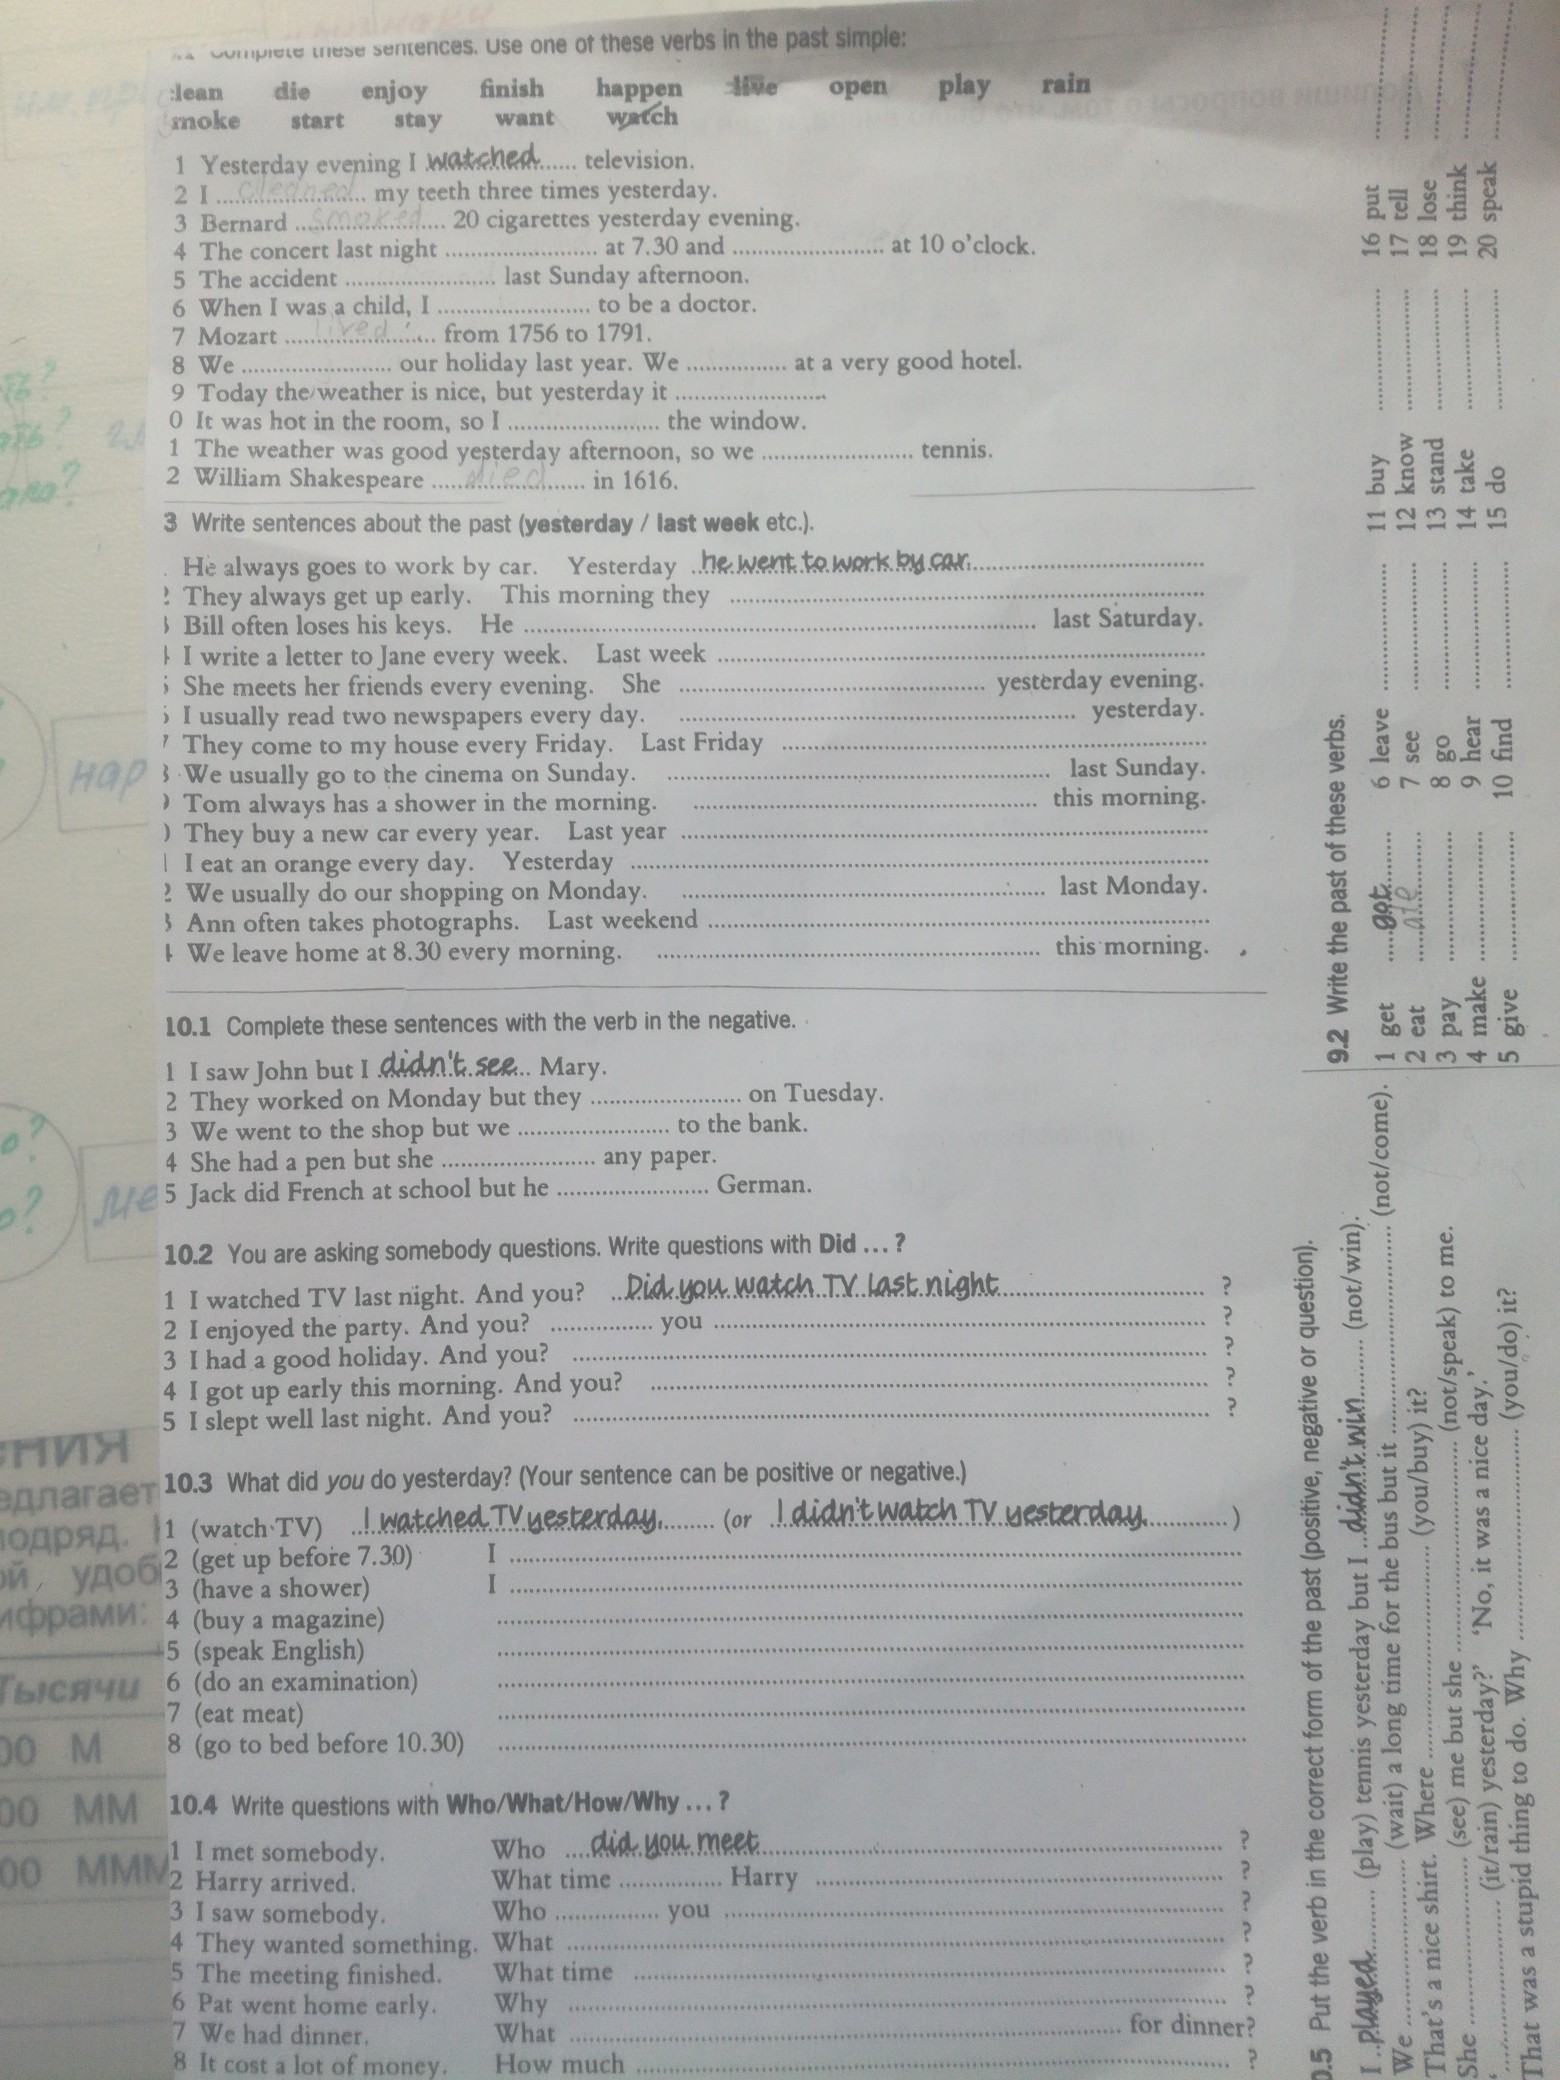 Complete these sentences. Use one of these verbs in the past simple:
clean die enjoy finish happen live open play rain
smoke start stay want watch
1 Yesterday evening I watched ...... television.
2 I cleaned my teeth three times yesterday.
3 Bernard smoked 20 cigarettes yesterday evening.
4 The concert last night ...................... at 7.30 and ...................... at 10 o'clock.
5 The accident ...................... last Sunday afternoon.
6 When I was a child, I ...................... to be a doctor.
7 Mozart lived from 1756 to 1791.
8 We ...................... our holiday last year. We ............... at a very good hotel.
9 Today the weather is nice, but yesterday it ......................
0 It was hot in the room, so I ...................... the window.
1 The weather was good yesterday afternoon, so we ...................... tennis.
2 William Shakespeare died in 1616.
3 Write sentences about the past (yesterday / last week etc.).
He always goes to work by car. Yesterday he went to work by car.
2 They always get up early. This morning they ......................
3 Bill often loses his keys. He ...................... last Saturday.
4 I write a letter to Jane every week. Last week ......................
5 She meets her friends every evening. She ...................... yesterday evening.
6 I usually read two newspapers every day. ...................... yesterday.
7 They come to my house every Friday. Last Friday ......................
8 We usually go to the cinema on Sunday. ...................... last Sunday.
9 Tom always has a shower in the morning. ...................... this morning.
0 They buy a new car every year. Last year ......................
1 I eat an orange every day. Yesterday ......................
2 We usually do our shopping on Monday. ...................... last Monday.
3 Ann often takes photographs. Last weekend ......................
4 We leave home at 8.30 every morning. ...................... this morning.
10.1 Complete these sentences with the verb in the negative.
1 I saw John but I didn't see Mary.
2 They worked on Monday but they ...................... on Tuesday.
3 We went to the shop but we ...................... to the bank.
4 She had a pen but she ...................... any paper.
5 Jack did French at school but he ...................... German.
10.2 You are asking somebody questions. Write questions with Did ... ?
1 I watched TV last night. And you? Did you watch TV last night ?
2 I enjoyed the party. And you? ............... you ...................... ?
3 I had a good holiday. And you? ...................... ?
4 I got up early this morning. And you? ...................... ?
5 I slept well last night. And you? ...................... ?
10.3 What did you do yesterday? (Your sentence can be positive or negative.)
1 (watch TV) I watched TV yesterday. (or I didn't watch TV yesterday. )
2 (get up before 7.30) I ......................
3 (have a shower) I ......................
4 (buy a magazine) ......................
5 (speak English) ......................
6 (do an examination) ......................
7 (eat meat) ......................
8 (go to bed before 10.30) ......................
10.4 Write questions with Who/What/How/Why ... ?
1 I met somebody. Who did you meet ?
2 Harry arrived. What time ............... Harry ...................... ?
3 I saw somebody. Who ............... you ...................... ?
4 They wanted something. What ...................... ?
5 The meeting finished. What time ...................... ?
6 Pat went home early. Why ...................... ?
7 We had dinner. What ...................... for dinner?
8 It cost a lot of money. How much ...................... ?
9.2 Write the past of these verbs.
1 get got 6 leave ............... 11 buy ............... 16 put ...............
2 eat ate 7 see ............... 12 know ............... 17 tell ...............
3 pay ............... 8 go ............... 13 stand ............... 18 lose ...............
4 make ............... 9 hear ............... 14 take ............... 19 think ...............
5 give ............... 10 find ............... 15 do ............... 20 speak ...............
0.5 Put the verb in the correct form of the past (positive, negative or question).
I played (play) tennis yesterday but I didn't win (not/win).
We ............... (wait) a long time for the bus but it ............... (not/come).
That's a nice shirt. Where ............... (you/buy) it?
She ............... (see) me but she ............... (not/speak) to me.
' ............... (it/rain) yesterday?' 'No, it was a nice day.'
That was a stupid thing to do. Why ............... (you/do) it?
нар
ме
ения
едлагает
подряд.
ой, удоб
ифрами:
Тысячи
00 М
00 ММ
00 МММ